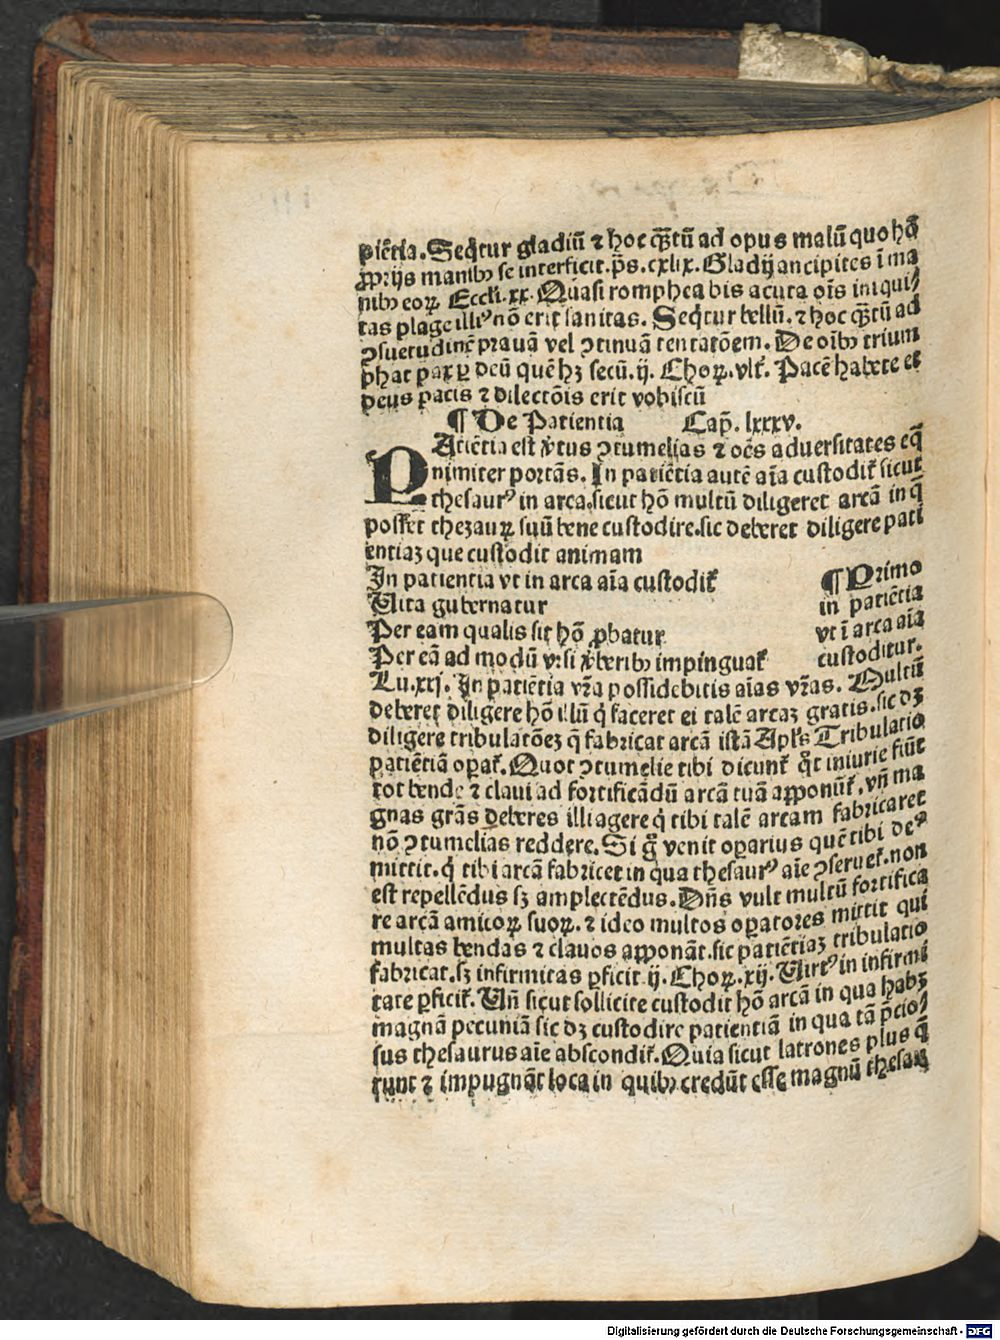 piẽtia. Seqͥtur gladiũ ⁊ hoc qͣꝫtũ ad opus malũ quo hõ
ꝓprijs manibꝰ se interficit. p̃s. cxlix. Gladij ancipites ĩ ma
nibꝰ eoꝝ. Eccłi. xx. Quasi romphea bis acuta oĩs iniqui⸗
tas plage illiꝰ nõ erit sanitas. Seqͥtur bellũ. ⁊ hoc qͣꝫtũ ad
ꝯsuetudinẽ prauã vel ꝯtinuã tentatõem. De oĩbꝰ trium
phat pax ꝑ deũ quẽ hꝫ secũ. ij. Choꝝ. vlt̃. Pacẽ habete et
deus pacis ⁊ dilectõis erit vobiscũ
¶ De Patientia Cap̃. lxxxv.
PAtiẽtia est v̾tus ꝯtumelias ⁊ oẽs aduersitates eq̃
nimiter portãs. In patiẽtia autẽ aĩa custodit̃ sicut
thesaurꝰ in arca. sicut hõ multũ diligeret arcã in q̃
posset thezauꝝ suũ bene custodire. sic deberet diligere pati
entiaꝫ que custodit animam
In patientia vt in arca aĩa custodit̃
Vita gubernatur
Per eam qualis sit hõ ꝓbatur
Per eã ad modũ vrsi v̾beribꝰ impinguat̃
¶ Primo
in patiẽtia
vt ĩ arca aĩa
custoditur.
Lu. xxj. In patiẽtia vr̃a possidebitis aĩas vr̃as. Multũ
deberet diligere hõ illũ qͥ faceret ei talẽ arcaꝫ gratis. sic dꝫ
diligere tribulatõeꝫ q̃ fabricat arcã istã Apl̃s Tribulatio
patiẽtiã oꝑat̃. Quot ꝯtumelie tibi dicunt̃ qͦt iniurie fiũt
tot bende ⁊ claui ad fortificãdũ arcã tuã apponũt̃. vñ ma
gnas grãs deberes illi agere qͥ tibi talẽ arcam fabricaret
nõ ꝯtumelias reddere. Si gͦ venit oꝑarius quẽ tibi deꝰ
mittit. qͥ tibi arcã fabricet in qua thesaurꝰ aĩe ꝯseruet̃. non
est repellẽdus sꝫ amplectẽdus. Dñs vult multũ fortifica
re arcã amicoꝝ suoꝝ. ⁊ ideo multos oꝑatores mittit qui
multas bendas ⁊ clauos apponãt. sic patiẽtiaꝫ tribulatio
fabricat. sꝫ infirmitas ꝑficit ij. Choꝝ. xij. Virtꝰ in infirmi
tate ꝑficit̃. Vñ sicut sollicite custodit hõ arcã in qua habꝫ
magnã pecuniã sic dꝫ custodire patientiã in qua tã p̃cio⸗
sus thesaurus aĩe abscondit̃. Quia sicut latrones plus q̃
runt ⁊ impugnãt loca in quibꝰ credũt esse magnũ thesau